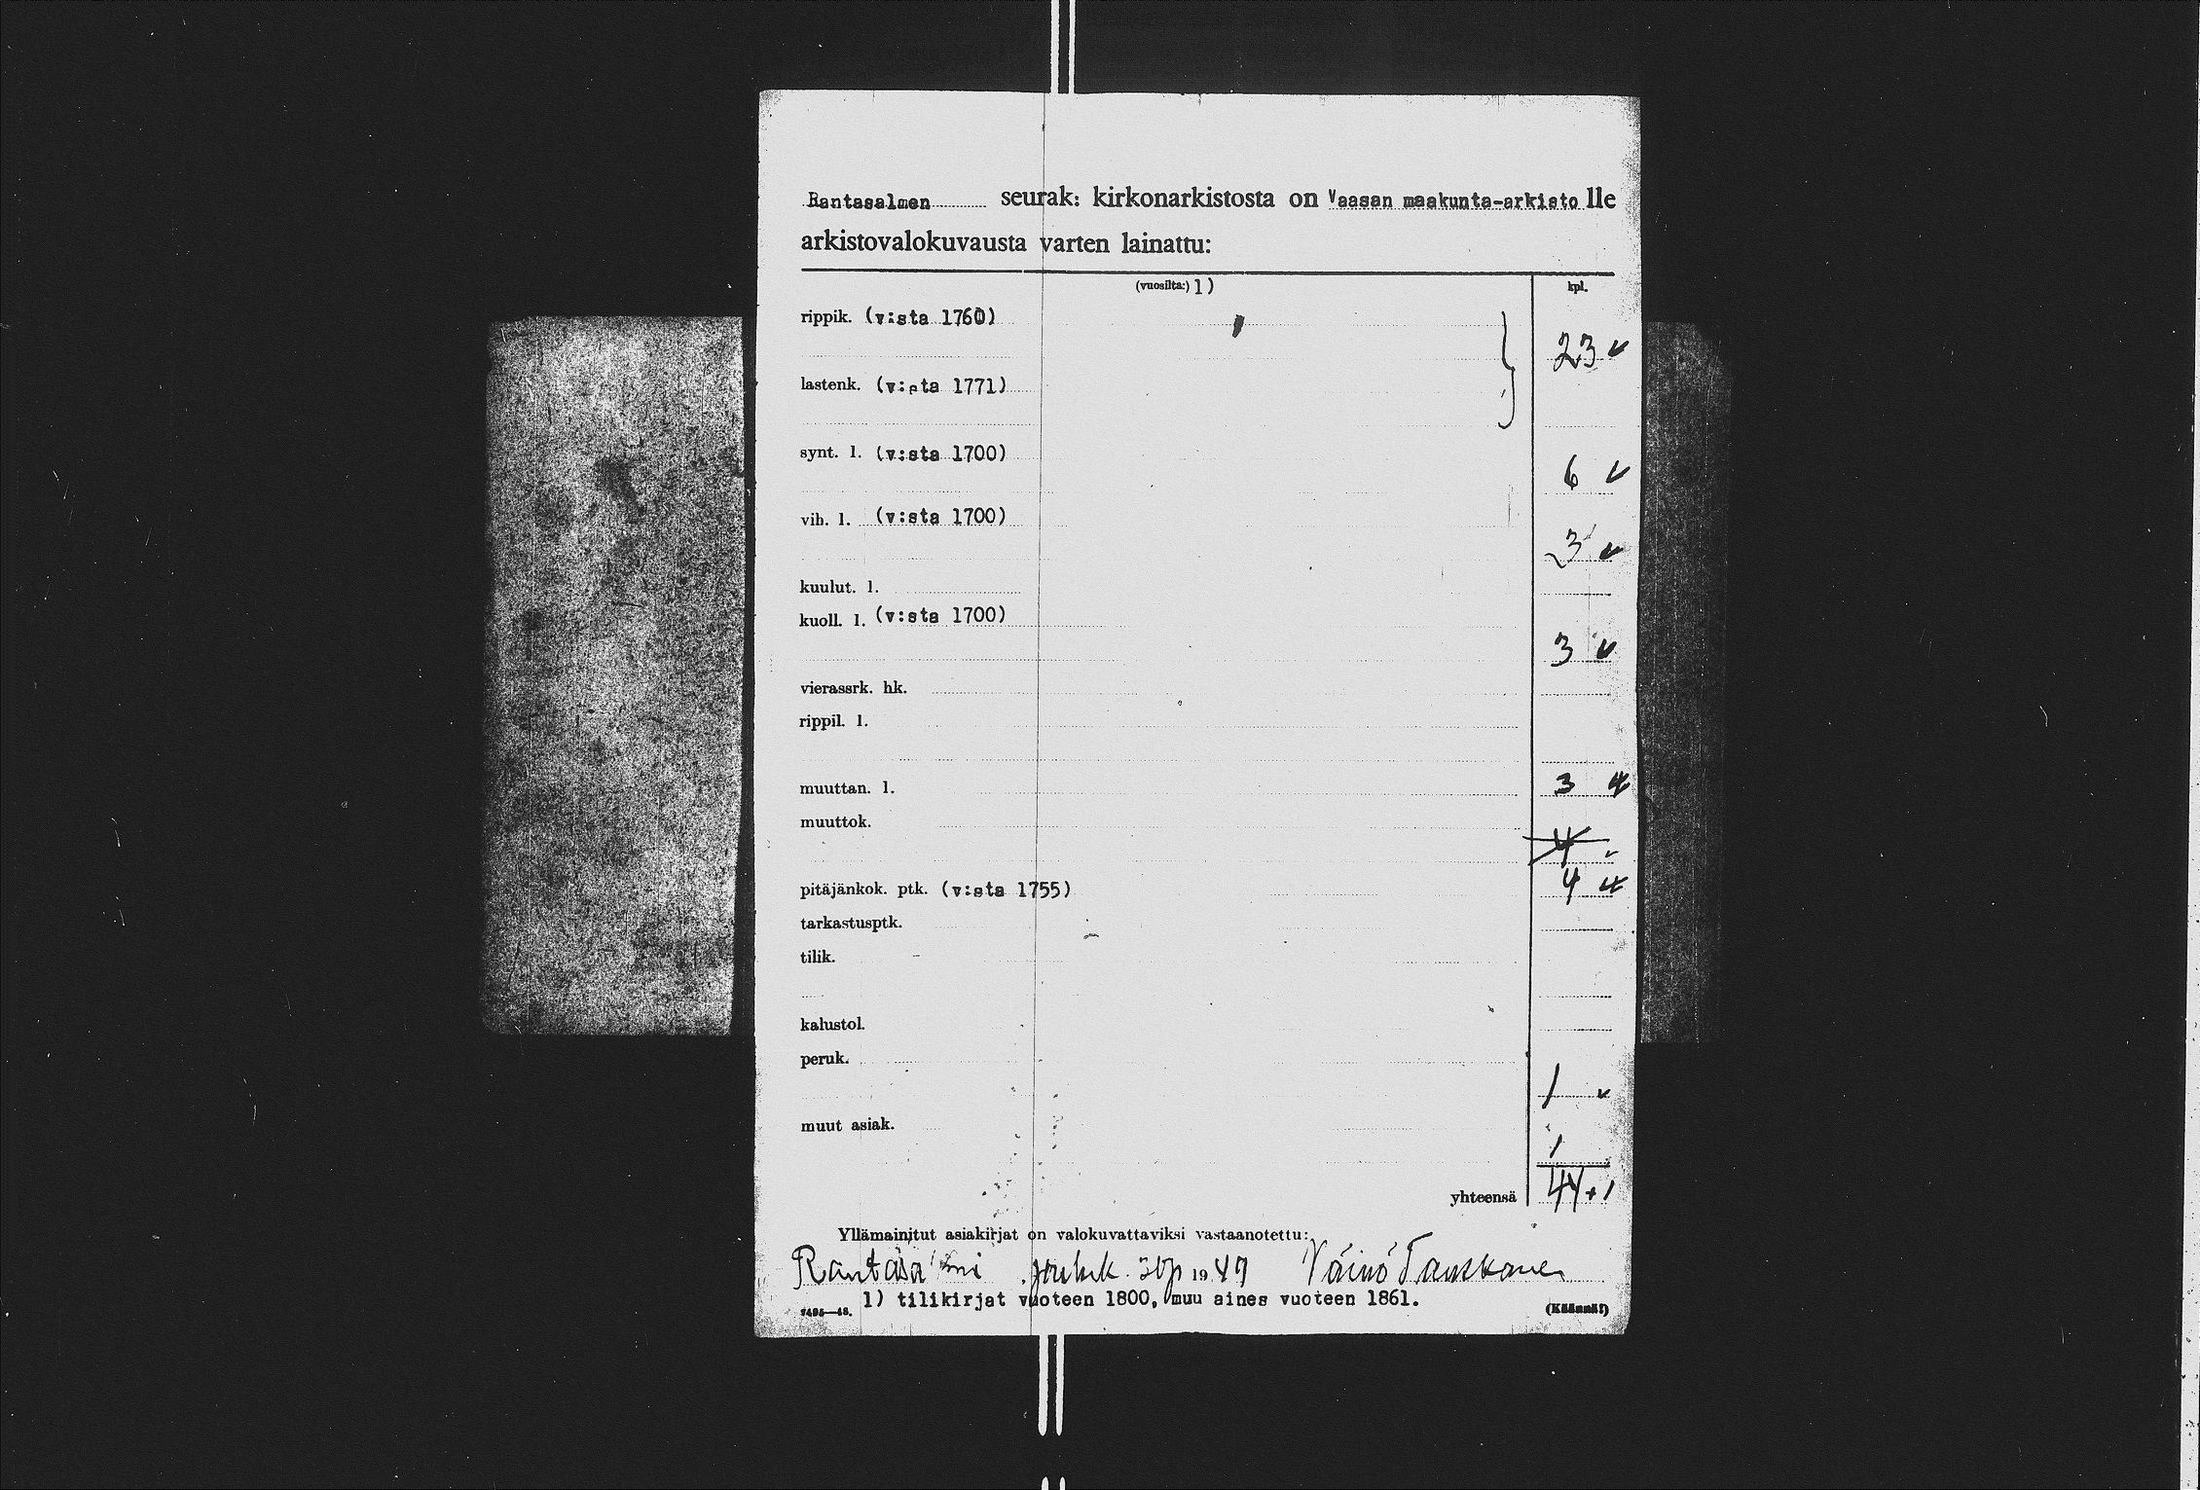 Rantasalmen seurak: kirkonarkistosta on Vaasan maakunta-arkisto lle
arkistovalokuvausta varten lainattu:
(vuosilta:) 1) kpl.
rippik. (v:sta 1760)
23
lastenk. (v:sta 1771)
synt. l. (v:sta 1700)
6
vih. l. (v:sta 1700)
3
kuulut. l.
kuoll. l. (v:sta 1700)
3
vierassrk. hk.
rippil. l.
muuttan. l. 3 4
muuttok.
4
pitäjänkok. ptk. (v:sta 1755) 4 4
tarkastusptk.
tilik.
kalustol.
peruk.
1
muut asiak.
1
yhteensä 44+1
Yllämainitut asiakirjat on valokuvattaviksi vastaanotettu:
Rantasalmi 19 49 Väinö Tanskanen
1) tilikirjat vuoteen 1800, muu aines vuoteen 1861.
(Käännä!)